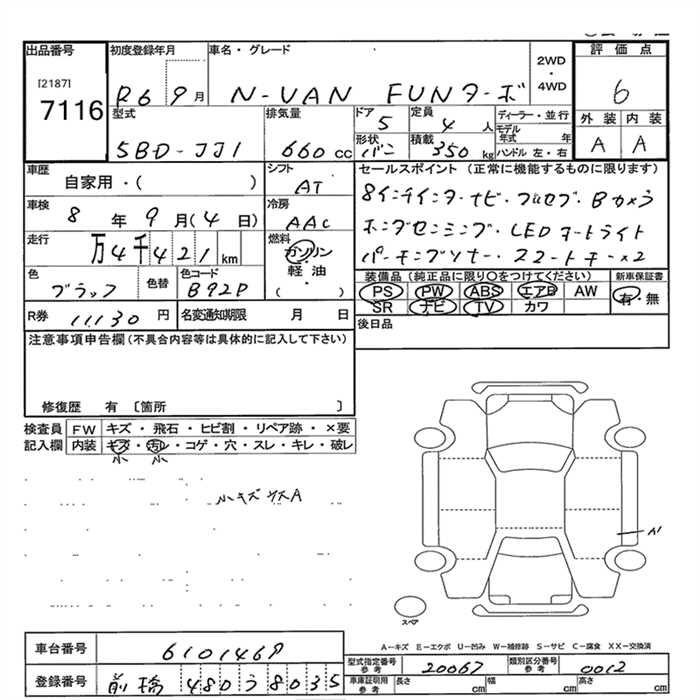 出品番号 初度登録年月 車名・グレード 2WD・4WD 評価点
[2187] 7116 R6 9月 N-VAN FUNターボ 6
型式 排気量 ドア 定員 ディーラー・並行 外装 内装
5BD-JJ1 660cc 5 4人 モデル年式 年 A A
形状 積載 ハンドル 左・右
バン 350kg
車歴 シフト セールスポイント (正常に機能するものに限ります)
自家用・( ) AT 8インチインターナビ・プルセブ・Bカメラ
車検 冷房 ホンダセンシング・LEDオートライト
8年9月(4日) AAC パーキングソナー・スマートキー×2
走行 燃料
万4千421km ガソリン・軽油・( )
色 色替 色コード 装備品 (純正品に限り○をつけてください) 新車保証書
ブラック B92P PS PW ABS エアB AW 有・無
SR ナビ TV カワ
R券 11130円 名変通知期限 月 日 後日品
注意事項申告欄 (不具合内容等は具体的に記入して下さい)
修復歴 有 〔箇所 〕
検査員記入欄 FW キズ・飛石・ヒビ割・リペア跡・×要
内装 キズ・汚レ・コゲ・穴・スレ・キレ・破レ
小 小
小キズ サスA
A1
スペア
A-キズ E-エクボ U-凹み W-補修跡 S-サビ C-腐食 XX-交換済
車台番号 6101468 型式指定番号 参考 20067 類別区分番号 参考 0012
登録番号 前橋 480う8035 車庫証明用 参考 長さ cm 幅 cm 高さ cm